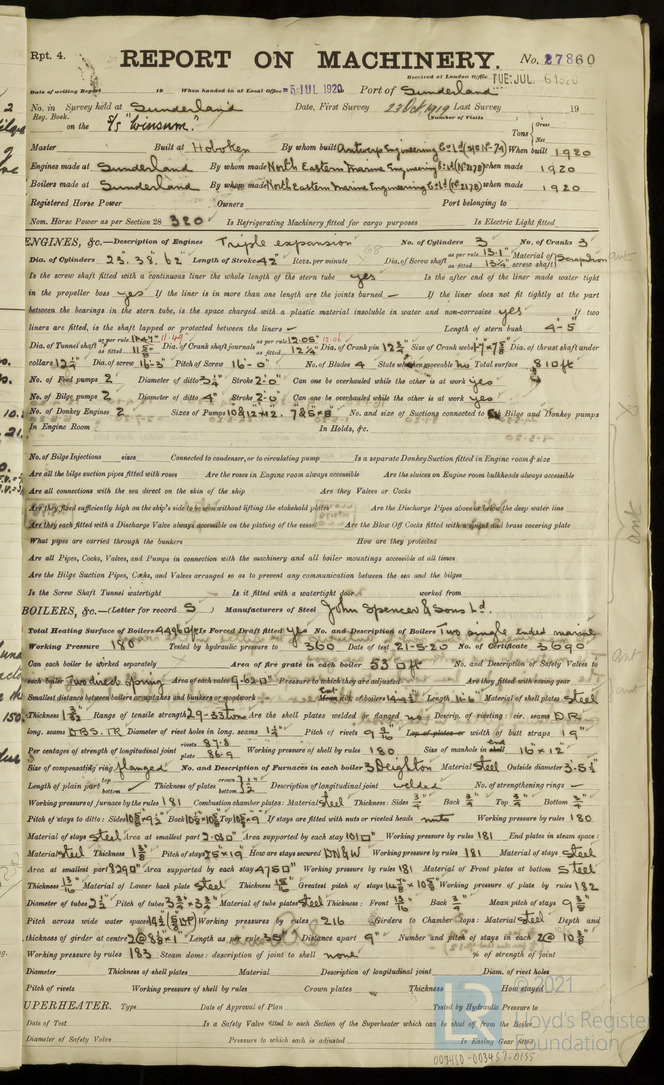 Rpt. 4.
REPORT ON MACHINERY.
No. 27860
Received at London Office TUE. JUL. 6 1920
Date of writing Report 19 When handed in at Local Office 5 JUL 1920 Port of Sunderland
No. in Survey held at Sunderland Date, First Survey 23 Oct 1919 Last Survey 19
Reg. Book. (Number of Visits
on the S/S "Winsum." Tons { Gross Net
Master Built at Hoboken By whom built Antwerp Engineering Co Ld (Ship No 74) When built 1920
Engines made at Sunderland By whom made North Eastern Marine Engineering Co Ld (No 2178) when made 1920
Boilers made at Sunderland By whom made North Eastern Marine Engineering Co Ld (No 2178) when made 1920
Registered Horse Power Owners Port belonging to
Nom. Horse Power as per Section 28 320 Is Refrigerating Machinery fitted for cargo purposes Is Electric Light fitted
ENGINES, &c.—Description of Engines Triple expansion No. of Cylinders 3 No. of Cranks 3
Dia. of Cylinders 23. 38. 62" Length of Stroke 42" Revs. per minute 68 Dia. of Screw shaft as per rule 13.1" as fitted 13¼" Material of screw shaft Scrap Iron
Is the screw shaft fitted with a continuous liner the whole length of the stern tube yes Is the after end of the liner made water tight
in the propeller boss yes If the liner is in more than one length are the joints burned – If the liner does not fit tightly at the part
between the bearings in the stern tube, is the space charged with a plastic material insoluble in water and non-corrosive yes If two
liners are fitted, is the shaft lapped or protected between the liners – Length of stern bush 4'-5"
Dia. of Tunnel shaft as per rule 11.47" 11.49 as fitted 11⅝" Dia. of Crank shaft journals as per rule 12.05" 12.06 as fitted 12¼" Dia. of Crank pin 12¾" Size of Crank webs Dia. of thrust shaft under
collars 12¼" Dia. of screw 16'-3" Pitch of Screw 16'-0" No. of Blades 4 State whether moveable no Total surface 81 0ft
No. of Feed pumps 2 Diameter of ditto 3¼" Stroke 2'-0" Can one be overhauled while the other is at work yes
No. of Bilge pumps 2 Diameter of ditto 4" Stroke 2'-0" Can one be overhauled while the other is at work yes
No. of Donkey Engines 2 Sizes of Pumps 10 & 12 × 12. 7 & 5 × 8" No. and size of Suctions connected to both Bilge and Donkey pumps
In Engine Room In Holds, &c.
No. of Bilge Injections sizes Connected to condenser, or to circulating pump Is a separate Donkey Suction fitted in Engine room & size
Are all the bilge suction pipes fitted with roses Are the roses in Engine room always accessible Are the sluices on Engine room bulkheads always accessible
Are all connections with the sea direct on the skin of the ship Are they Valves or Cocks
Are they fixed sufficiently high on the ship's side to be seen without lifting the stokehold plates Are the Discharge Pipes above or below the deep water line
Are they each fitted with a Discharge Valve always accessible on the plating of the vessel Are the Blow Off Cocks fitted with a spigot and brass covering plate
What pipes are carried through the bunkers How are they protected
Are all Pipes, Cocks, Valves, and Pumps in connection with the machinery and all boiler mountings accessible at all times
Are the Bilge Suction Pipes, Cocks, and Valves arranged so as to prevent any communication between the sea and the bilges
Is the Screw Shaft Tunnel watertight Is it fitted with a watertight door worked from
BOILERS, &c.—(Letter for record S ) Manufacturers of Steel John Spencer & Sons Ld.
Total Heating Surface of Boilers 4496 0ft Is Forced Draft fitted yes No. and Description of Boilers Two single ended marine
Working Pressure 180 Tested by hydraulic pressure to 360 Date of test 21-5-20 No. of Certificate 3690
Can each boiler be worked separately Area of fire grate in each boiler 53 0ft No. and Description of Safety Valves to
each boiler Two direct spring Area of each valve Pressure to which they are adjusted Are they fitted with easing gear
Smallest distance between boilers or uptakes and bunkers or woodwork dia. of boilers Length 11'-6" Material of shell plates Steel
Thickness Range of tensile strength 29-33 tons Are the shell plates welded or flanged no Descrip. of riveting: cir. seams D.R
long. seams D.B.S. T.R Diameter of rivet holes in long. seams 1¼" Pitch of rivets Lap of plates or width of butt straps 19"
Per centages of strength of longitudinal joint rivets 87.8 plate 86.9 Working pressure of shell by rules 180 Size of manhole in shell end 16" × 12"
Size of compensating ring flanged No. and Description of Furnaces in each boiler 3 Deighton Material Steel Outside diameter 3'-5¼"
Length of plain part top bottom Thickness of plates crown bottom Description of longitudinal joint welded No. of strengthening rings
Working pressure of furnace by the rules 181 Combustion chamber plates: Material Steel Thickness: Sides Back Top Bottom
Pitch of stays to ditto: Sides Back Top If stays are fitted with nuts or riveted heads nuts Working pressure by rules 180
Material of stays Steel Area at smallest part Area supported by each stay Working pressure by rules 181 End plates in steam space:
Material Steel Thickness Pitch of stays How are stays secured D.N&W Working pressure by rules 181 Material of stays Steel
Area at smallest part Area supported by each stay Working pressure by rules 181 Material of Front plates at bottom Steel
Thickness Material of Lower back plate Steel Thickness Greatest pitch of stays Working pressure of plate by rules 182
Diameter of tubes 2½" Pitch of tubes Material of tube plates Steel Thickness: Front Back Mean pitch of stays
Pitch across wide water spaces Working pressures by rules 216 Girders to Chamber tops: Material Steel Depth and
thickness of girder at centre Length as per rule Distance apart 9" Number and pitch of stays in each
Working pressure by rules 183 Steam dome: description of joint to shell none % of strength of joint
Diameter Thickness of shell plates Material Description of longitudinal joint Diam. of rivet holes
Pitch of rivets Working pressure of shell by rules Crown plates Thickness How stayed
UPERHEATER. Type Date of Approval of Plan Tested by Hydraulic Pressure to
Date of Test Is a Safety Valve fitted to each Section of the Superheater which can be shut off from the Boiler
Diameter of Safety Valve Pressure to which each is adjusted Is Easing Gear fitted
© 2021
Lloyd's Register
Foundation
003450-003457-0155